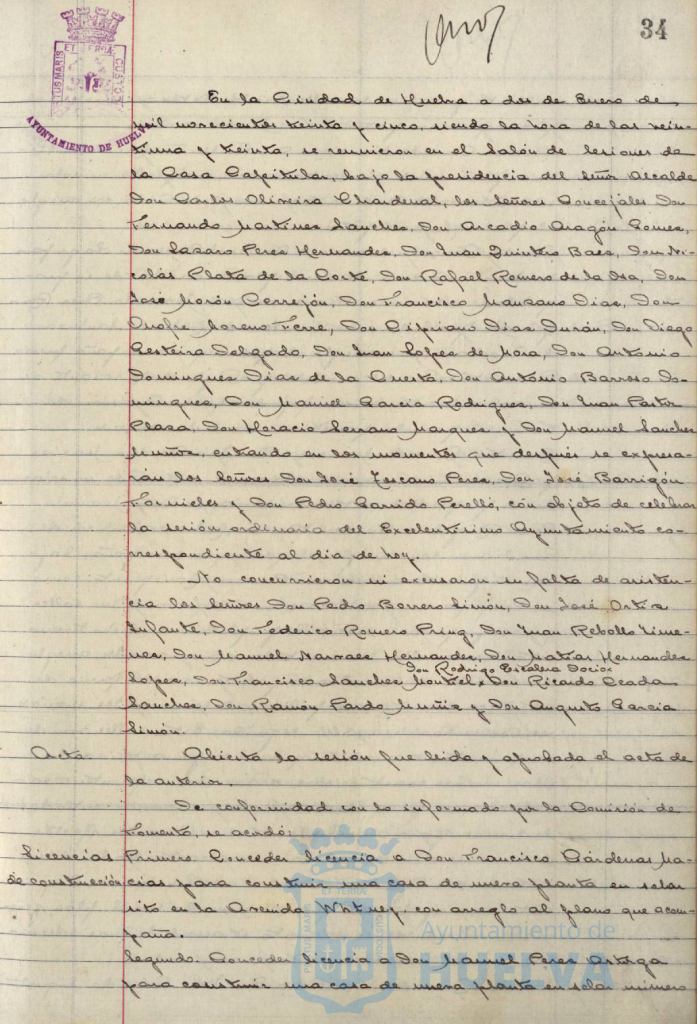 34
ET TERRAE CUSTODIA
PORTUS MARIS
AYUNTAMIENTO DE HUELVA
En la Ciudad de Huelva a dos de Enero de
mil novecientos treinta y cinco, siendo la hora de las vein-
tiuna y treinta, se reunieron en el Salón de Sesiones de
la Casa Capitular, bajo la presidencia del Señor Alcalde
Don Carlos Oliveira Chardenal, los Señores Concejales Don
Fernando Martinez Sanchez, Don Arcadio Aragón Gomez,
Don Lazaro Perez Hernandez, Don Juan Quintero Baez, Don Ni-
colás Plata de la Corte, Don Rafael Romero de la Osa, Don
José Morón Cerrejón, Don Francisco Manzano Dias, Don
Onofre Moreno Ferre, Don Cipriano Dias Durán, Don Diego
Gesteira Delgado, Don Juan Lopez de Mora, Don Antonio
Dominguez Dias de la Cuesta, Don Antonio Barroso Do-
minguez, Don Manuel Garcia Rodriguez, Don Juan Pastor
Plaza, Don Horacio Serrano Marquez y Don Manuel Sanchez
Muñoz, entrando en los momentos que después se expresa-
rán los Señores Don José Toscano Perez, Don José Barrigón
Fornieles y Don Pedro Garrido Perelló, con objeto de celebrar
la sesión ordinaria del Excelentísimo Ayuntamiento co-
rrespondiente al dia de hoy.
No concurrieron ni excusaron su falta de asisten-
cia los Señores Don Pedro Borrero Limón, Don José Ortiz
Infante, Don Federico Romero Pring, Don Juan Rebollo Jime-
nez, Don Manuel Narvaez Hernandez, Don Matias Hernandez
Don Rodrigo Escalera Docio
Lopez, Don Francisco Sanchez Montiel, Don Ricardo Ceada
Sanchez, Don Ramón Pardo Muñiz y Don Augusto Garcia
Limón.
Acta. Abierta la sesión fue leida y aprobada el acta de
la anterior.
De conformidad con lo informado por la Comisión de
Fomento, se acordó:
Licencias Primero. Conceder licencia a Don Francisco Cárdenas Ma-
de construcción cias para construir una casa de nueva planta en solar
sito en la Avenida Whtney, con arreglo al plano que acom-
paña.
Segundo. Conceder licencia a Don Manuel Perez Astorga
para construir una casa de nueva planta en solar número
Ayuntamiento de
HUELVA